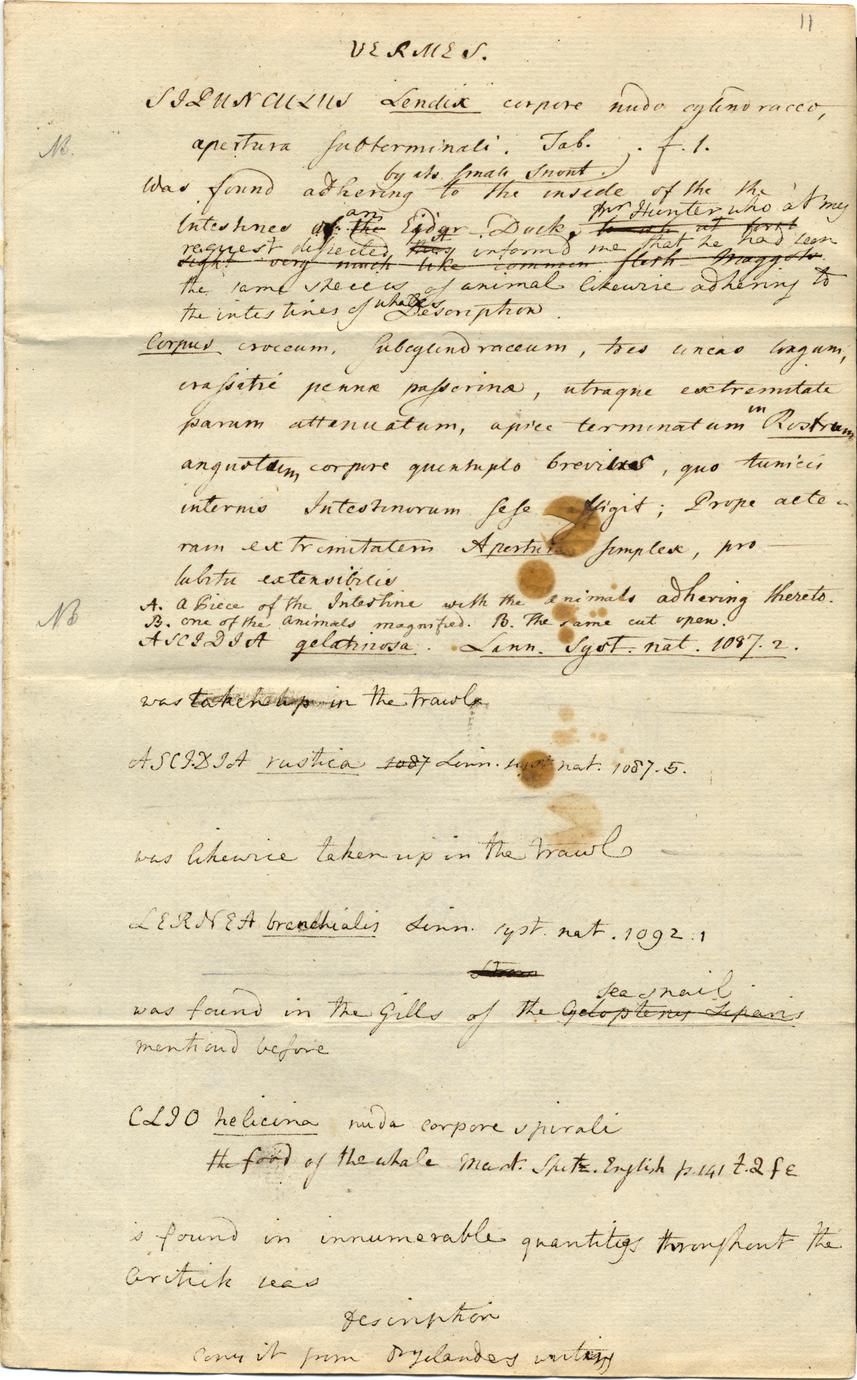 11
VERMES.
SIPUNCULUS Lendix corpore nudo cylindraceo,
apertura subterminali. Tab. . f. 1.
NB.
by its small snout
Was found adhering to the inside of the the
Intestines of the an Eider Duck, Mr Hunter who at my
request dissected this informd me that he had seen
sight very much like common flesh Maggots
the same species of animal likewise adhering to
the intestines of whales
Description.
Corpus croceum, subcylindraceum, tres lineas longum,
crassitie pennæ passerinæ, utraque extremitate
parum attenuatum, apice terminatum in Rostrum
angustum, corpore quintuplo brevius, quo tunicis
internis Intestinorum sese affigit; Prope alte-
ram extremitatem Apertura simplex, pro
lubitu extensibilis
NB
A. a Piece of the Intestine with the animals adhering thereto.
B. one of the animals magnified. B. The same cut open.
ASCIDIA gelatinosa. Linn. Syst. nat. 1087. 2.
was taken up in the trawl
ASCIDIA rustica 1087 Linn. syst nat. 1087. 5.
was likewise taken up in the trawl
LERNEA branchialis Linn. syst. nat. 1092. 1
sea snail
was found in the Gills of the Cycloptenus Liparis
mentiond before
CLIO helicina nuda corpore spirali
the food of the whale Mart. Spitz. English p. 141 t. Q f e
is found in innumerable quantities throughout the
arctick seas
Description
copy it from Drylanders writing